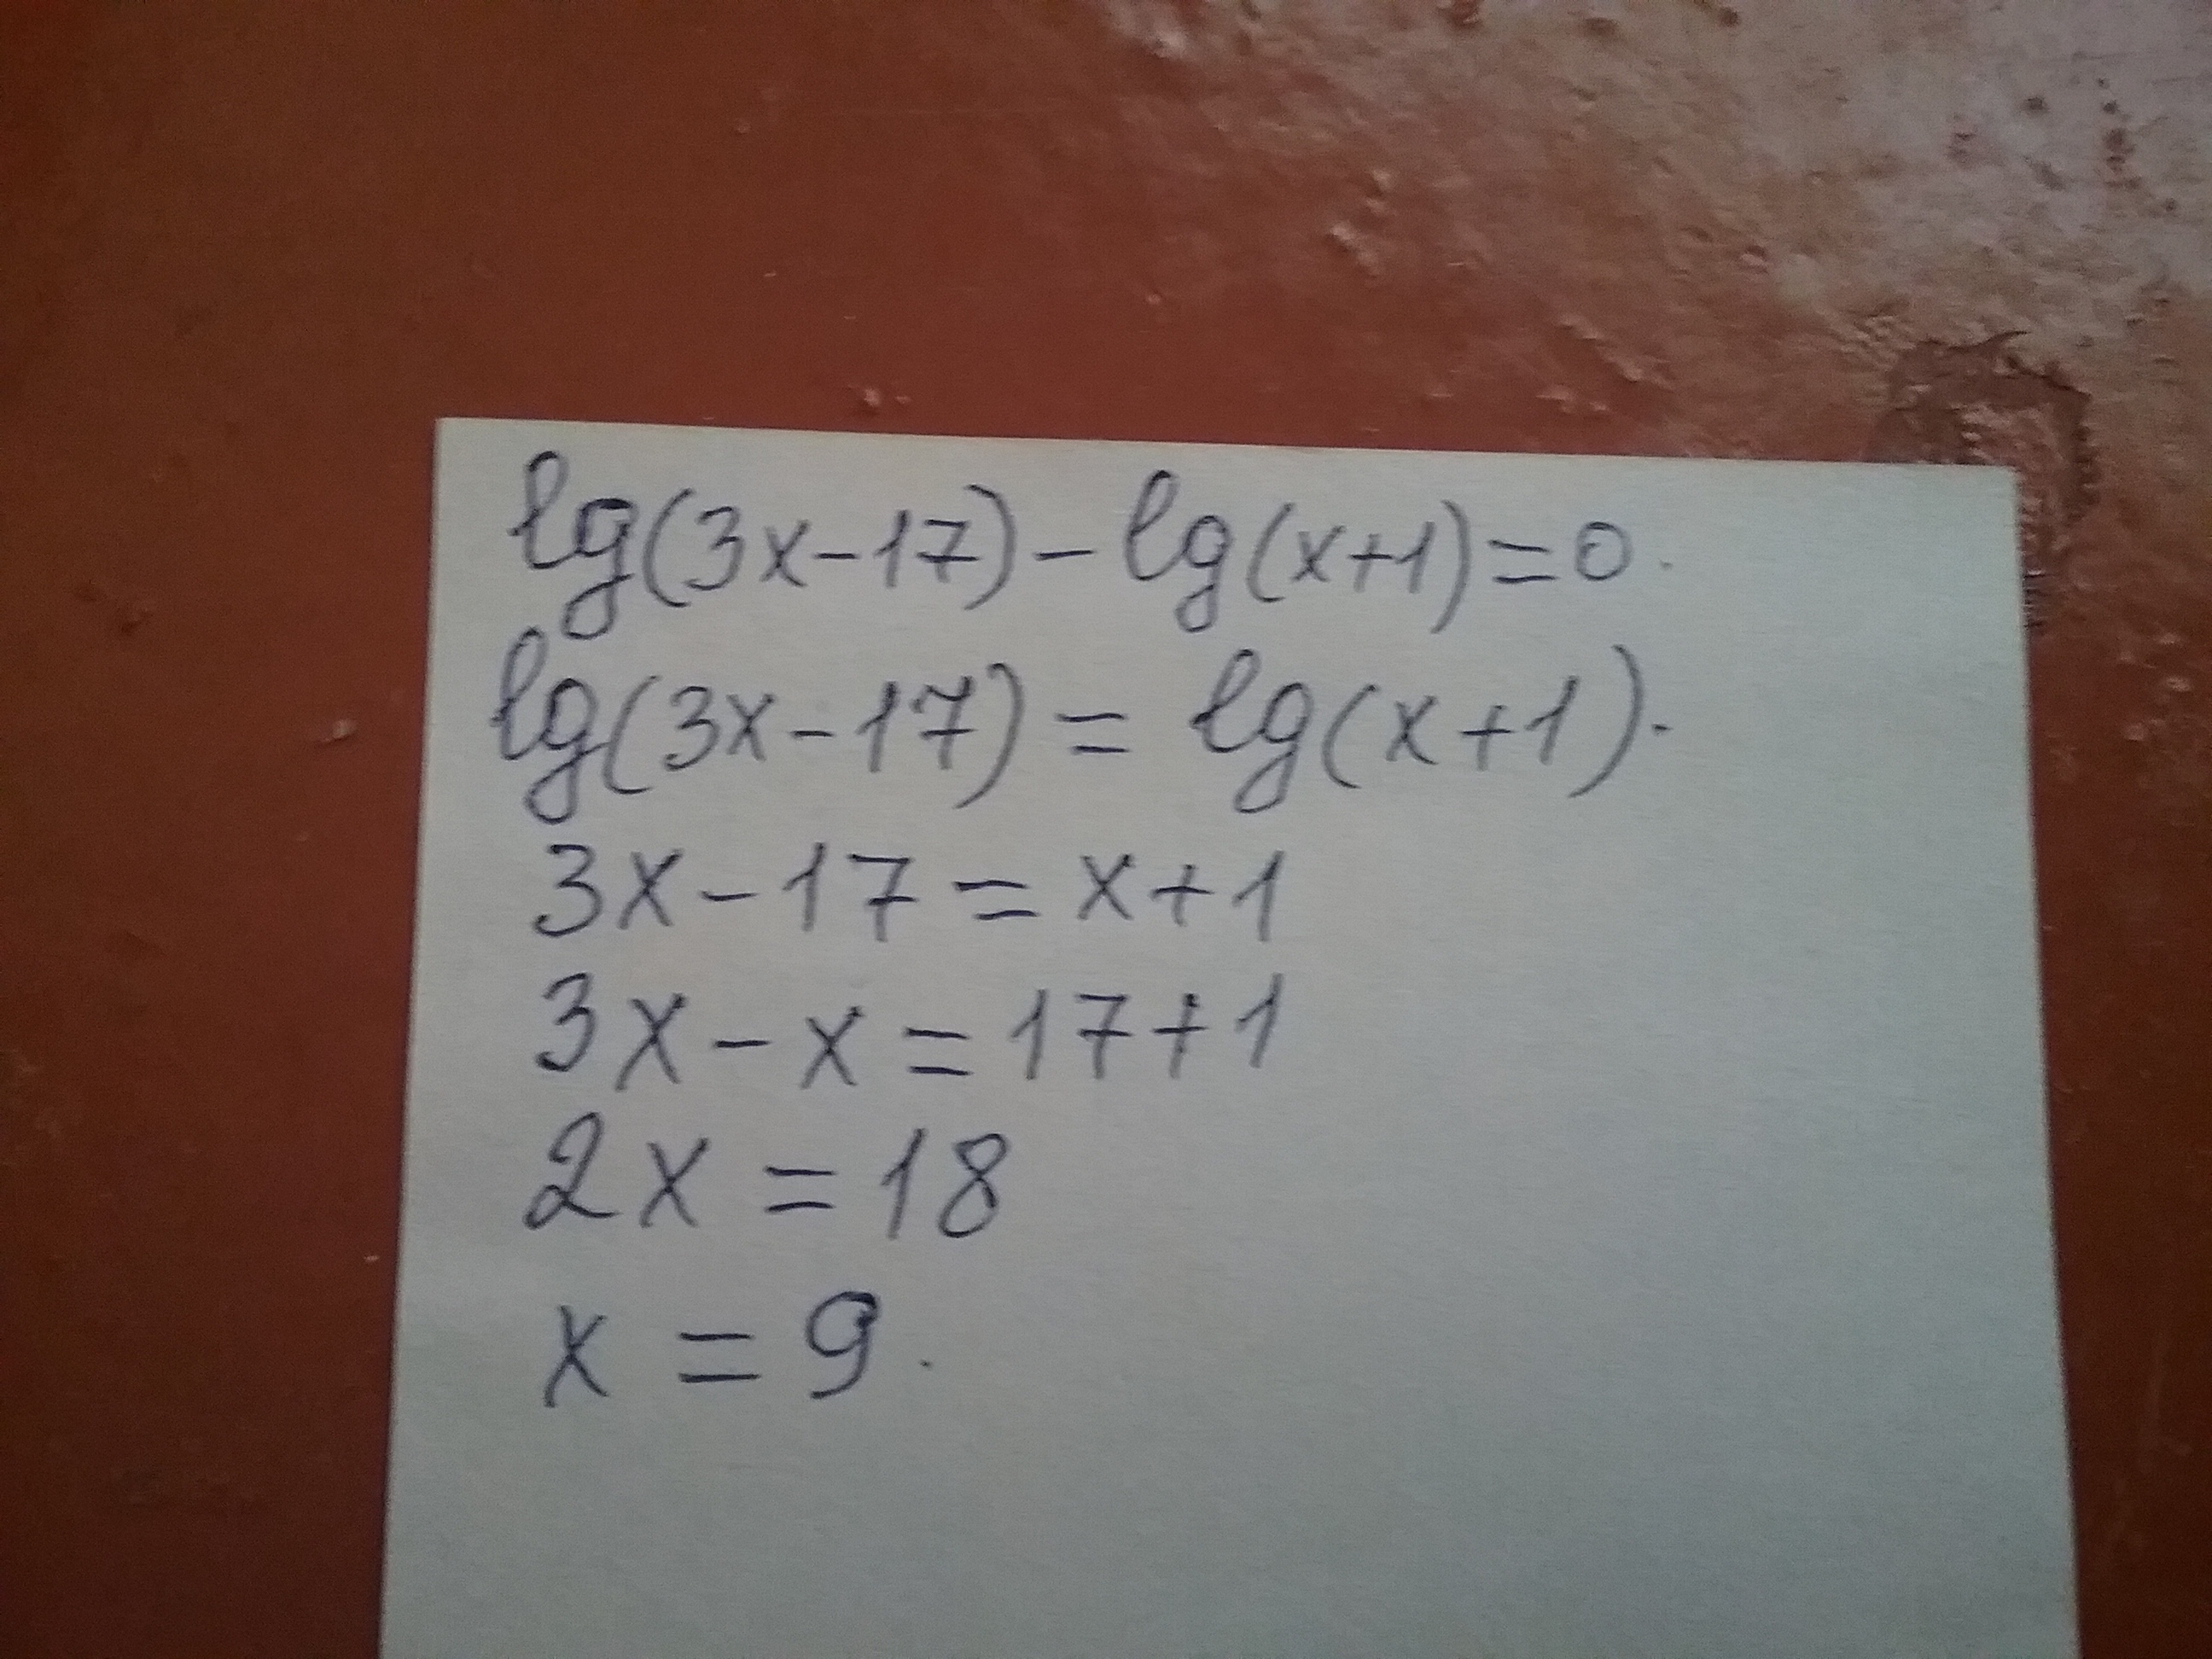 lg(3x-17)-lg(x+1)=0.
lg(3x-17)=lg(x+1).
3x-17=x+1
3x-x=17+1
2x=18
x=9.